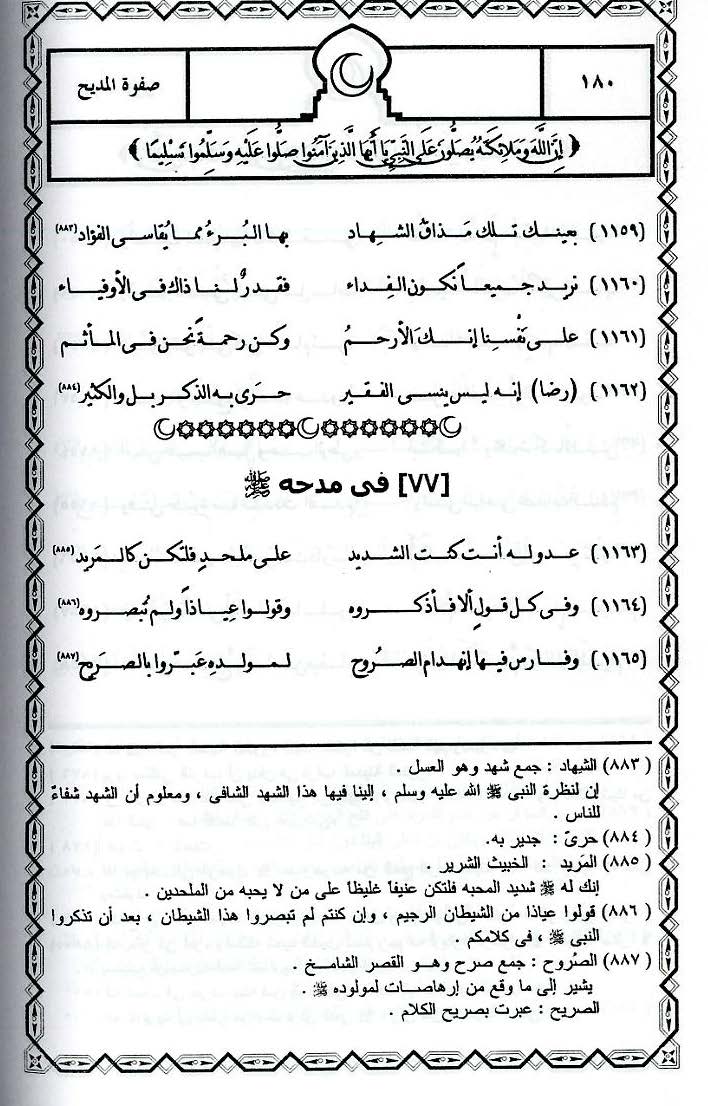 ١٨٠
صفوة المديح
﴿ إِنَّ اللَّهَ وَمَلَائِكَتَهُ يُصَلُّونَ عَلَى النَّبِيِّ يَا أَيُّهَا الَّذِينَ آمَنُوا صَلُّوا عَلَيْهِ وَسَلِّمُوا تَسْلِيمًا ﴾
(١١٥٩) بعينك تلك مَذاقُ الشهاد بها البُرءُ مما يُقاسى الفؤاد (٨٨٣)
(١١٦٠) نريد جميعاً نكون الفِداء فقدرْ لنا ذاك فى الأوفياء
(١١٦١) على نَفْسِنا إنك الأرحمُ وكن رحمةً نحن فى المأثم
(١١٦٢) (رضا) إنه ليس ينسى الفقير حرَى به الذكر بل والكثير (٨٨٤)
[٧٧] فى مدحه ﷺ
(١١٦٣) عدو له أنت كنت الشديد على ملحدٍ فلتكن كالمَريد (٨٨٥)
(١١٦٤) وفى كل قولٍ ألا فأذكروه وقولوا عِياذاً ولم تُبصروه (٨٨٦)
(١١٦٥) وفارس فيها إنهدام الصُروح لمولدِهِ عَبّروا بالصريح (٨٨٧)
(٨٨٣) الشِهاد : جمع شهد وهو العسل .
إن لنظرة النبى ﷺ الله عليه وسلم ، إلينا فيها هذا الشهد الشافى ، ومعلوم أن الشهد شفاءٌ
للناس .
(٨٨٤) حرىّ : جدير به.
(٨٨٥) المَريد : الخبيث الشرير .
إنك له ﷺ شديد المحبه فلتكن عنيفاً غليظاً على من لا يحبه من الملحدين .
(٨٨٦) قولوا عياذا من الشيطان الرجيم ، وإن كنتم لم تبصروا هذا الشيطان ، بعد أن تذكروا
النبى ﷺ ، فى كلامكم .
(٨٨٧) الصُروح : جمع صرح وهو القصر الشامخ .
يشير إلى ما وقع من إرهاصات لمولوده ﷺ .
الصريح : عبرت بصريح الكلام .